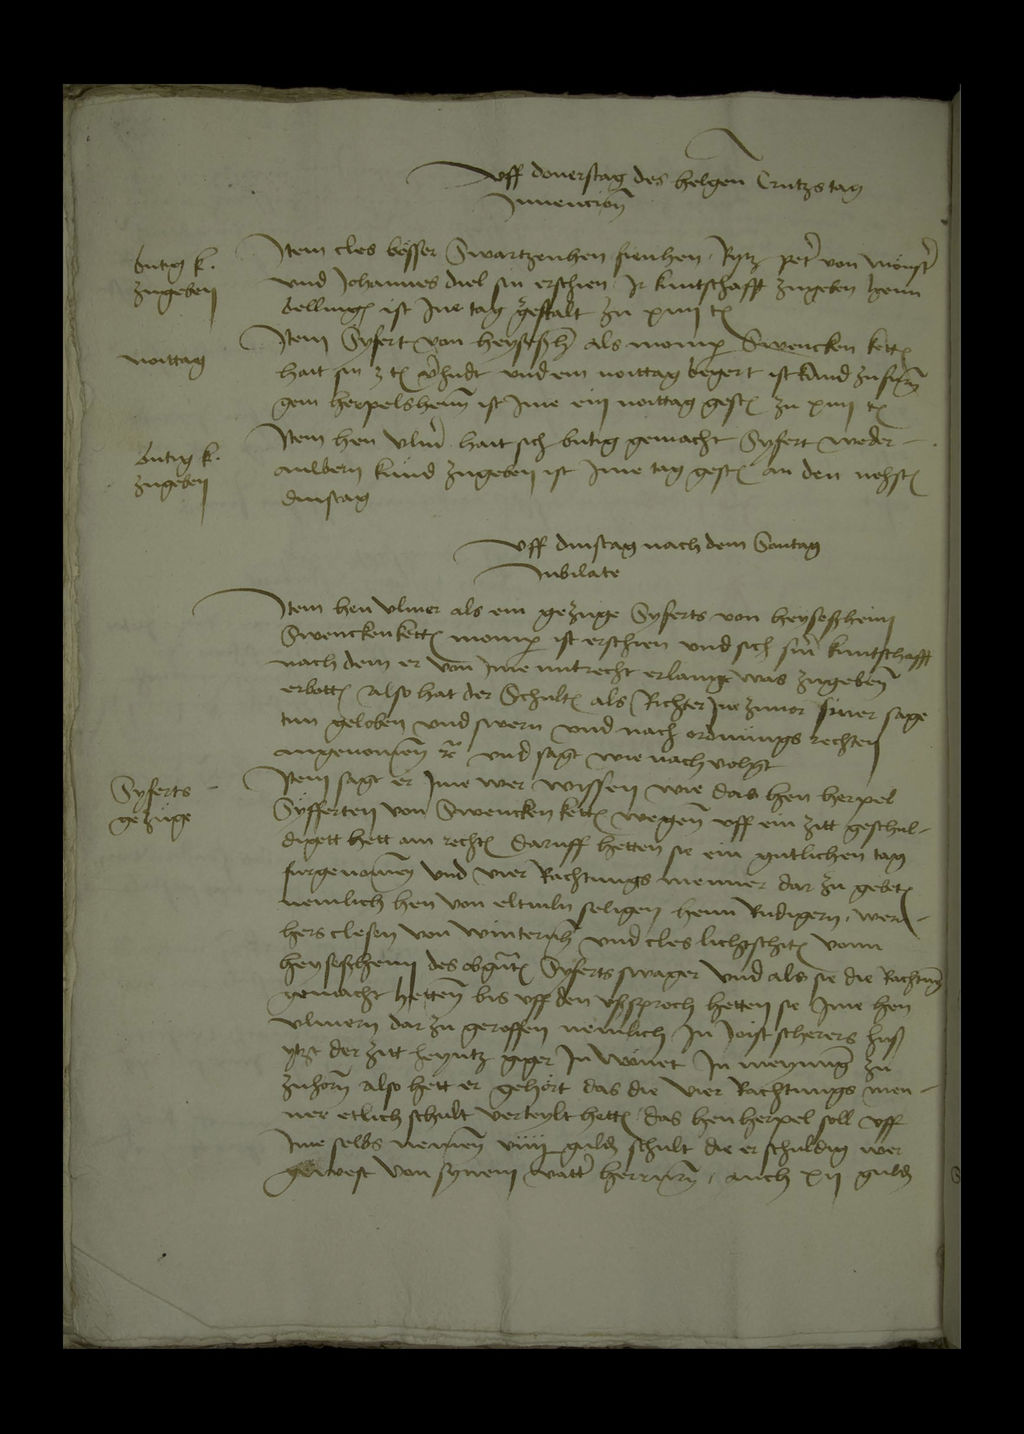 Uff donerstag des helgen Crutzs tag
Invencionis
butig k.
zugeben
Item cles beisser Swartzenhen sienhen Rytz peter von
und Johannes diel sin erschien Ir kuntschafft zugeben
ist Ine tag gestalt zu xiiii t
noittag
Item Syfert von heyseszh als momp Swencken kett
hait sin 3 t und ein noittag begert ist kund zufurn
gein herpelsheim ist Ime ein noittag gest zu xiiii t
butig k.
zugeben
Item hen ulmer hait sich butig gemacht Syfert weder
kund zugeben ist Ime tag gest an den nehst
dinstag
Uff dinstag nach dem Sontag
Jubilate
Item hen ulmer als ein gezuge Syferts von heyseszheim
Swencken kett momp ist erschien und sich sin kuntschafft
nach dem er von Ime mit recht erlangt was zugeben
erbott also hat der Schult als Richter Ine zuvor siner sage
tun geloben und swern und nach ordnungs rechten
angenomen rc und sagt wie nach volgt
Syferts
gezuge
Item sagt er Ime wer wyssen wie das hen herpel
Syfferten von Swencken kett wegen uff ein zitt geschul-
digett hett am recht daruff hetten sie ein gutlichen tag
furgenomen und vier Rachtungs menner dar zu gebet
nemlich hen von eltuiln seligen henn Rudigern wern-
hers clesen von winternh und cles lichtschit vonn
heyseszheim des obgnt Syferts swager und als sie die Rachtung
gemacht hetten bis uff den ussproch hetten sie Ime hen
ulmern dar zu geroffen nemlich In Joist scherers huß
ytzt der zitt heyntz In wonet In meynung zu
zuhorn also hett er gehort das die vier Rachtungs men-
ner etlich schult verteylt hett das hen herpel soll uff
Ime selbs nemen viiii guld schult die er schuldig wer
gewest von synem vatter herrurn auch xii guld